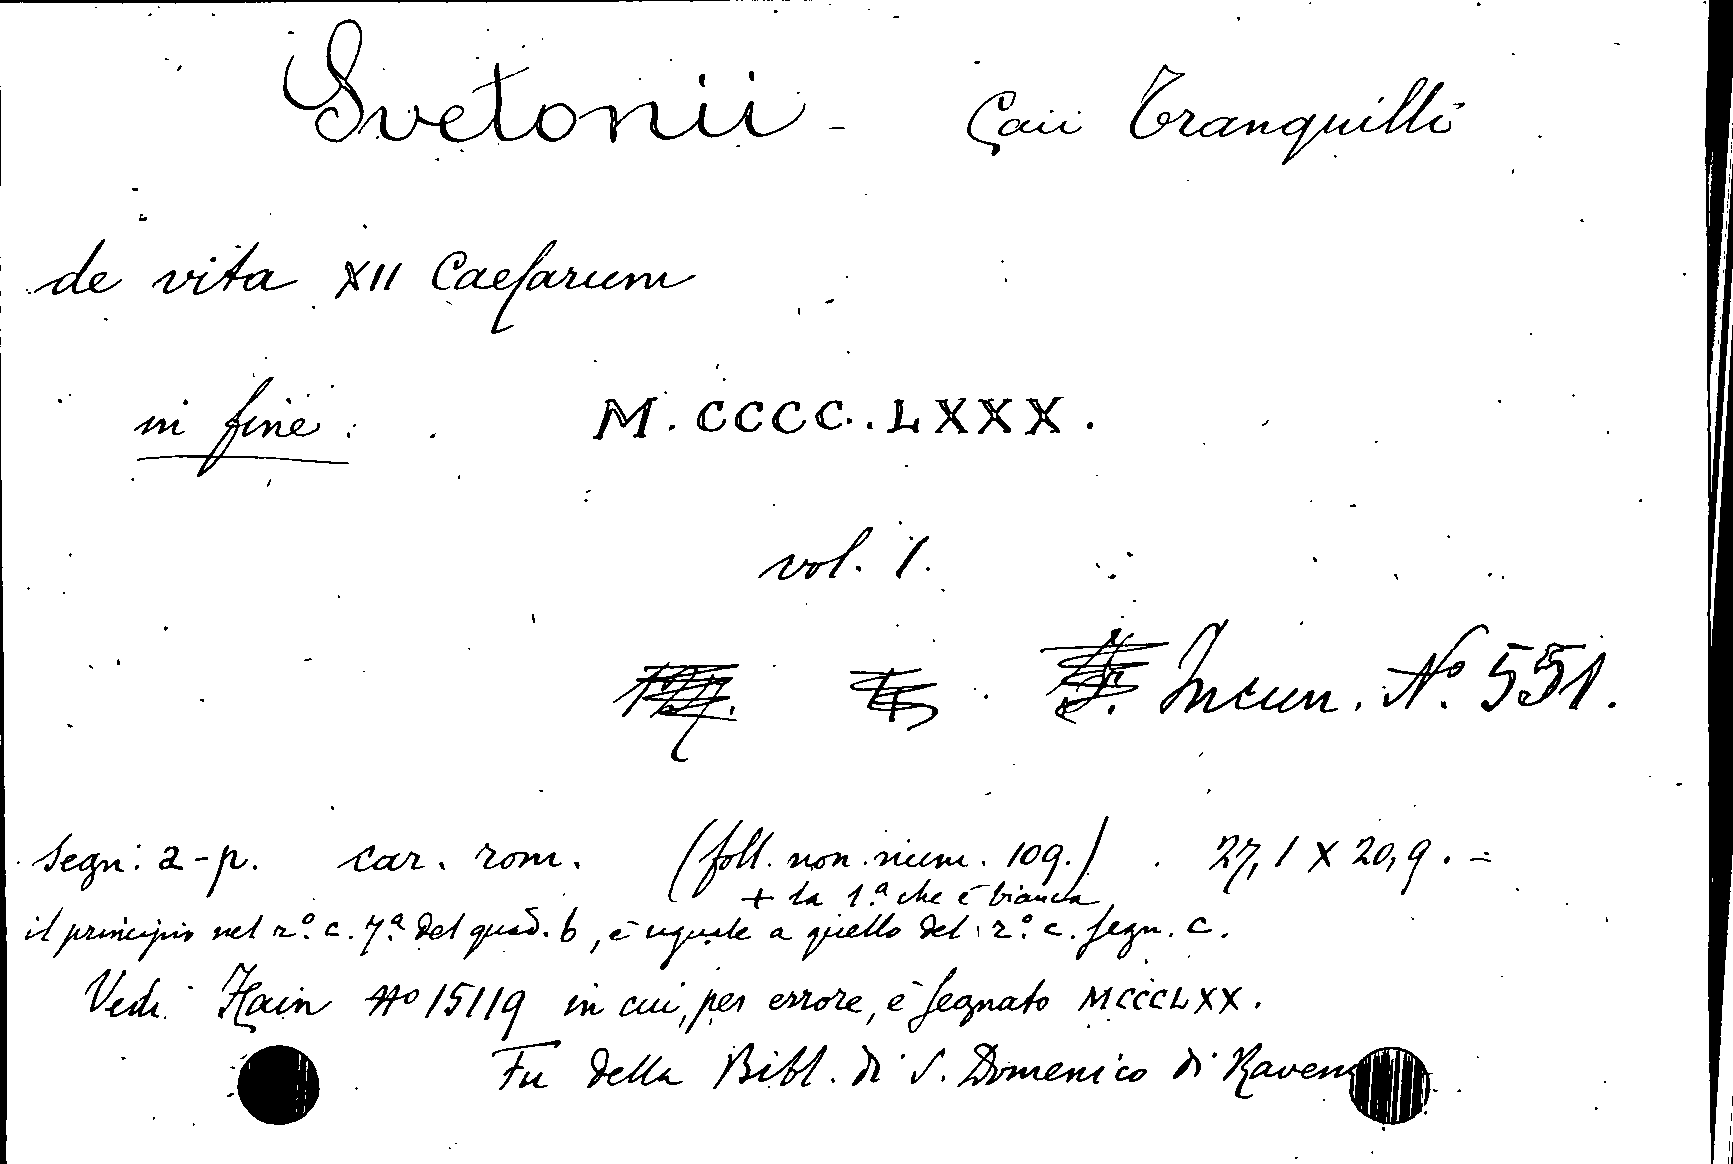 Svetonii - Caii Tranquilli
de vita XII Caesarum
in fine: M. CCCC. LXXX.
vol. 1.
Incun. Nº. 551.
segn: a-p. car. rom. (foll. non num. 109.) 27,1 X 20,9. =
+ la 1.ª che è bianca
il principio nel rº. c. 7ª. del quad. b, è uguale a quello del rº. c. segn. c.
Vedi Hain Nº 15119 in cui, per errore, è segnato MCCCLXX.
Fu della Bibl. di S. Domenico di Raven